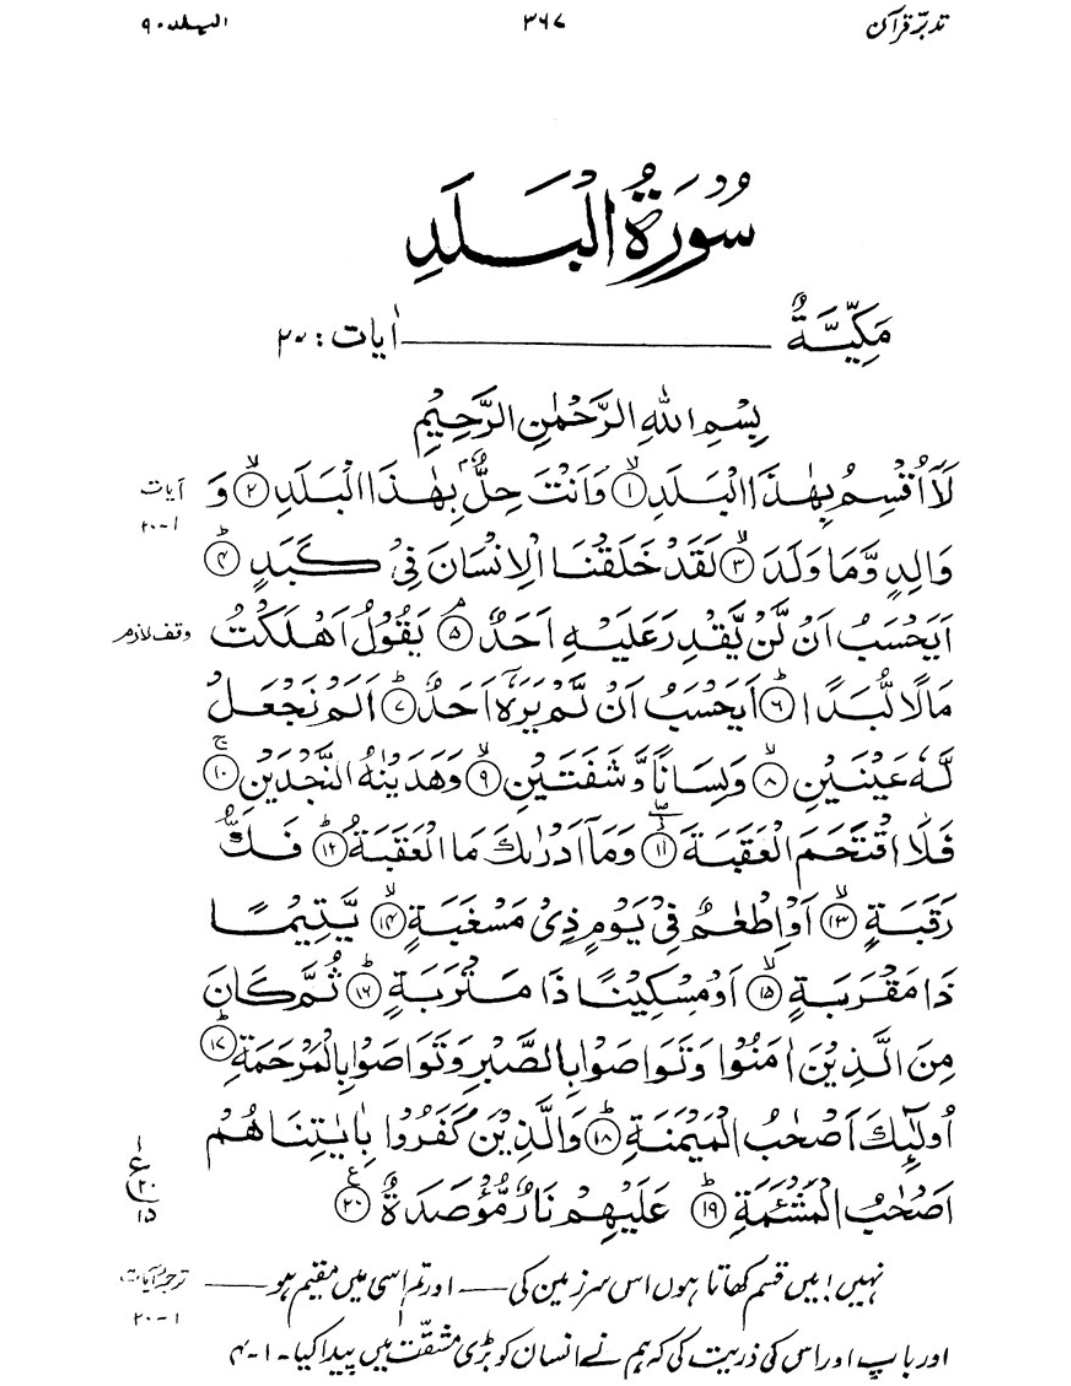 تدبّر قرآن ۳۶۷ البلد ۹۰
سُوْرَةُ الْبَلَدِ
مَكِّيَّةٌ اٰيات : ۲۰
بِسْمِ اللهِ الرَّحْمٰنِ الرَّحِيْمِ
لَآ اُقْسِمُ بِهٰذَا الْبَلَدِ ۱ وَاَنْتَ حِلٌّۢ بِهٰذَا الْبَلَدِ ۲ وَ
آیات
۱-۲۰
وَالِدٍ وَّمَا وَلَدَ ۳ لَقَدْ خَلَقْنَا الْاِنْسَانَ فِيْ كَبَدٍ ۴
اَيَحْسَبُ اَنْ لَّنْ يَّقْدِرَ عَلَيْهِ اَحَدٌ ۵ يَقُوْلُ اَهْلَكْتُ
وقف لازم
مَالًا لُّبَدًا ۶ اَيَحْسَبُ اَنْ لَّمْ يَرَهٗٓ اَحَدٌ ۷ اَلَمْ نَجْعَلْ
لَّهٗ عَيْنَيْنِ ۸ وَلِسَانًا وَّشَفَتَيْنِ ۹ وَهَدَيْنٰهُ النَّجْدَيْنِ ۱۰
فَلَا اقْتَحَمَ الْعَقَبَةَ ۱۱ وَمَآ اَدْرٰىكَ مَا الْعَقَبَةُ ۱۲ فَكُّ
رَقَبَةٍ ۱۳ اَوْ اِطْعٰمٌ فِيْ يَوْمٍ ذِيْ مَسْغَبَةٍ ۱۴ يَّتِيْمًا
ذَا مَقْرَبَةٍ ۱۵ اَوْ مِسْكِيْنًا ذَا مَتْرَبَةٍ ۱۶ ثُمَّ كَانَ
مِنَ الَّذِيْنَ اٰمَنُوْا وَتَوَاصَوْا بِالصَّبْرِ وَتَوَاصَوْا بِالْمَرْحَمَةِ ۱۷
اُولٰٓئِكَ اَصْحٰبُ الْمَيْمَنَةِ ۱۸ وَالَّذِيْنَ كَفَرُوْا بِاٰيٰتِنَا هُمْ
اَصْحٰبُ الْمَشْئَمَةِ ۱۹ عَلَيْهِمْ نَارٌ مُّؤْصَدَةٌ ۲۰
۱
ع
۲۰
۱۵
نہیں! میں قسم کھاتا ہوں اس سرزمین کی — اور تم اسی میں مقیم ہو —
ترجمۂ آیات
۱-۲۰
اور باپ اور اس کی ذریت کی کہ ہم نے انسان کو بڑی مشقّت میں پیدا کیا۔ ۱-۴